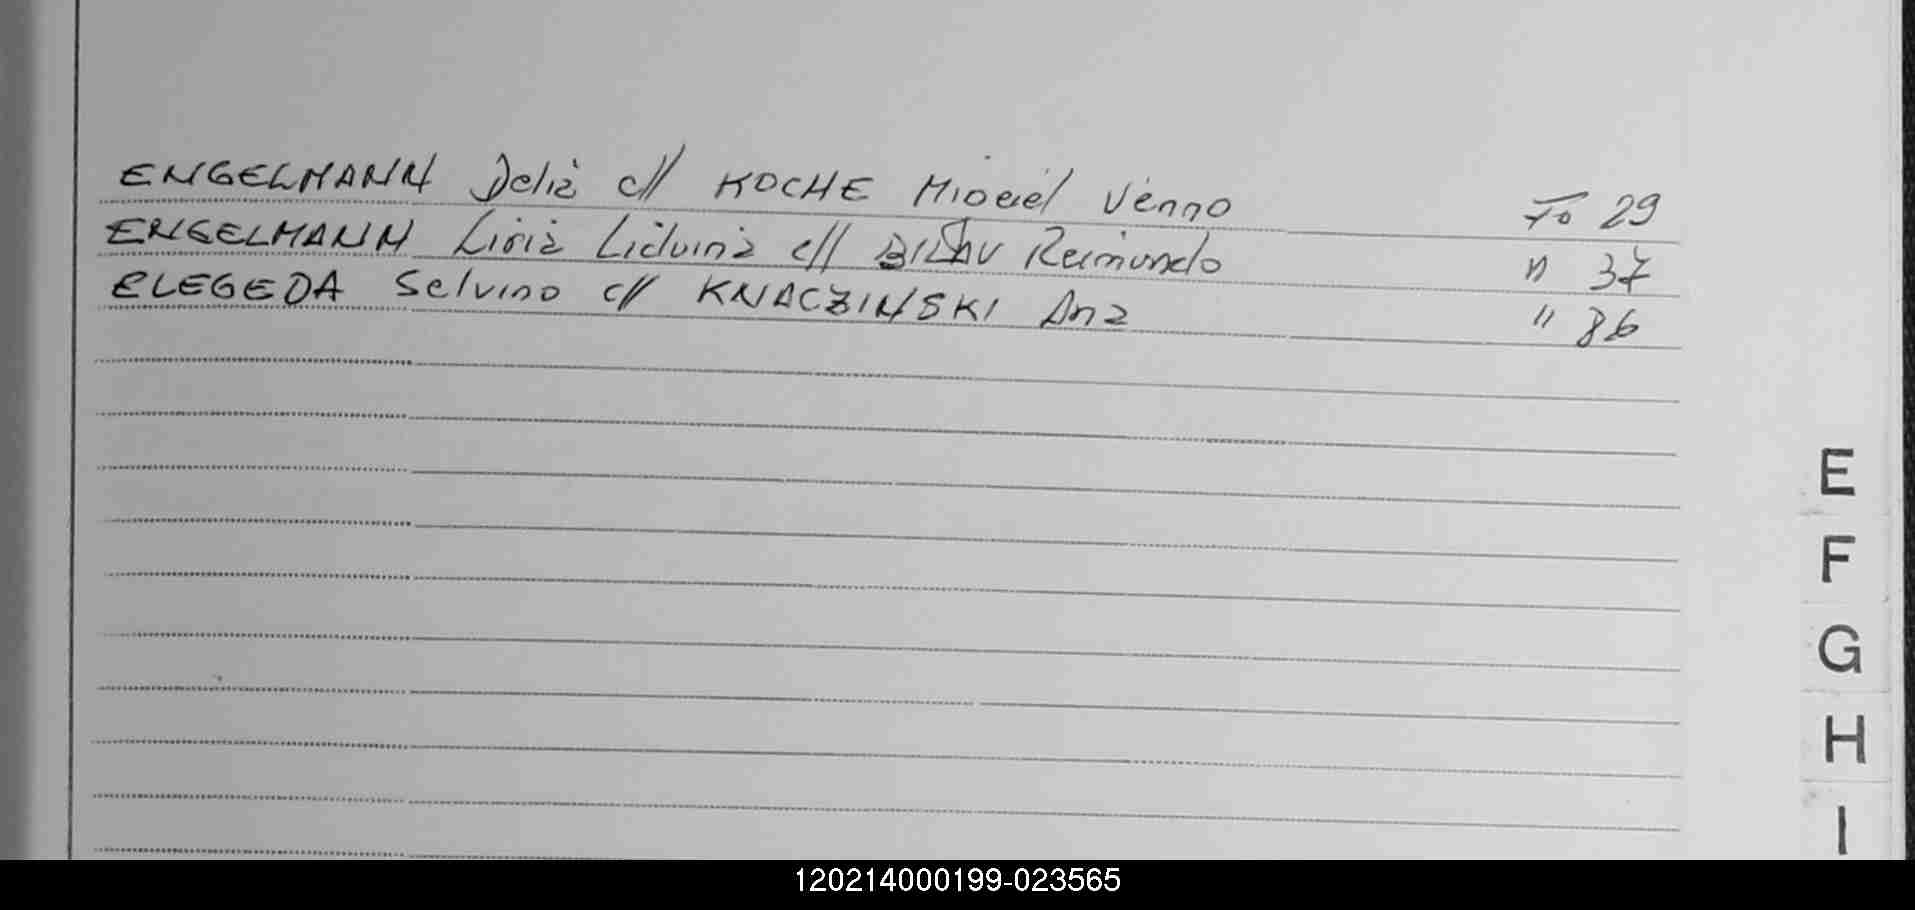 ENGELMANN Delia c// KOCHE Venno Fo 29
ENGELMANN Liria Liduina c// Reimundo " 37
ELEGEDA Selvino c// KNACZINSKI Ana " 86
E
F
G
H
I
120214000199-023565